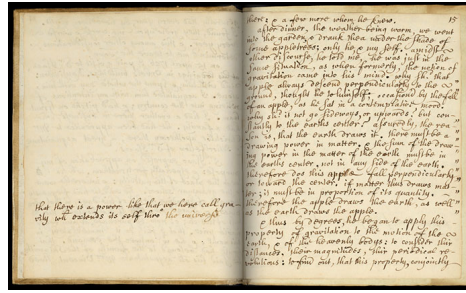 that there is a power like that we here call gra-
vity wh extends its self thro' the universe
15
there: & a few more whom he knew.
after dinner, the weather being warm, we went
into the garden, & drank thea under the shade of
some appletrees; only he, & my self. amidst
other discourse, he told me, he was just in the
same situation, as when formerly, the notion of
gravitation came into his mind. why sh. that
apple always descend perpendicularly to the
ground, thought he to himself; occasion'd by the fall
of an apple, as he sat in a contemplative mood.
why sh. it not go sideways, or upwards, but con-
stantly to the earths center? assuredly, the rea-
son is, that the earth draws it. there must be a
drawing power in matter. & the sum of the draw-
ing power in the matter of the earth must be in
the earths center, not in any side of the earth.
therefore dos this apple fall perpendicularly
or toward the center. if matter thus draws mat-
ter; it must be in proportion of its quantity.
therefore the apple draws the earth, as well
as the earth draws the apple.
& thus by degrees, he began to apply this
property of gravitation to the motion of the
earth, & of the heavenly bodys: to consider thir
distances, their magnitudes, thir periodical re-
volutions: to find out, that this property, conjointly